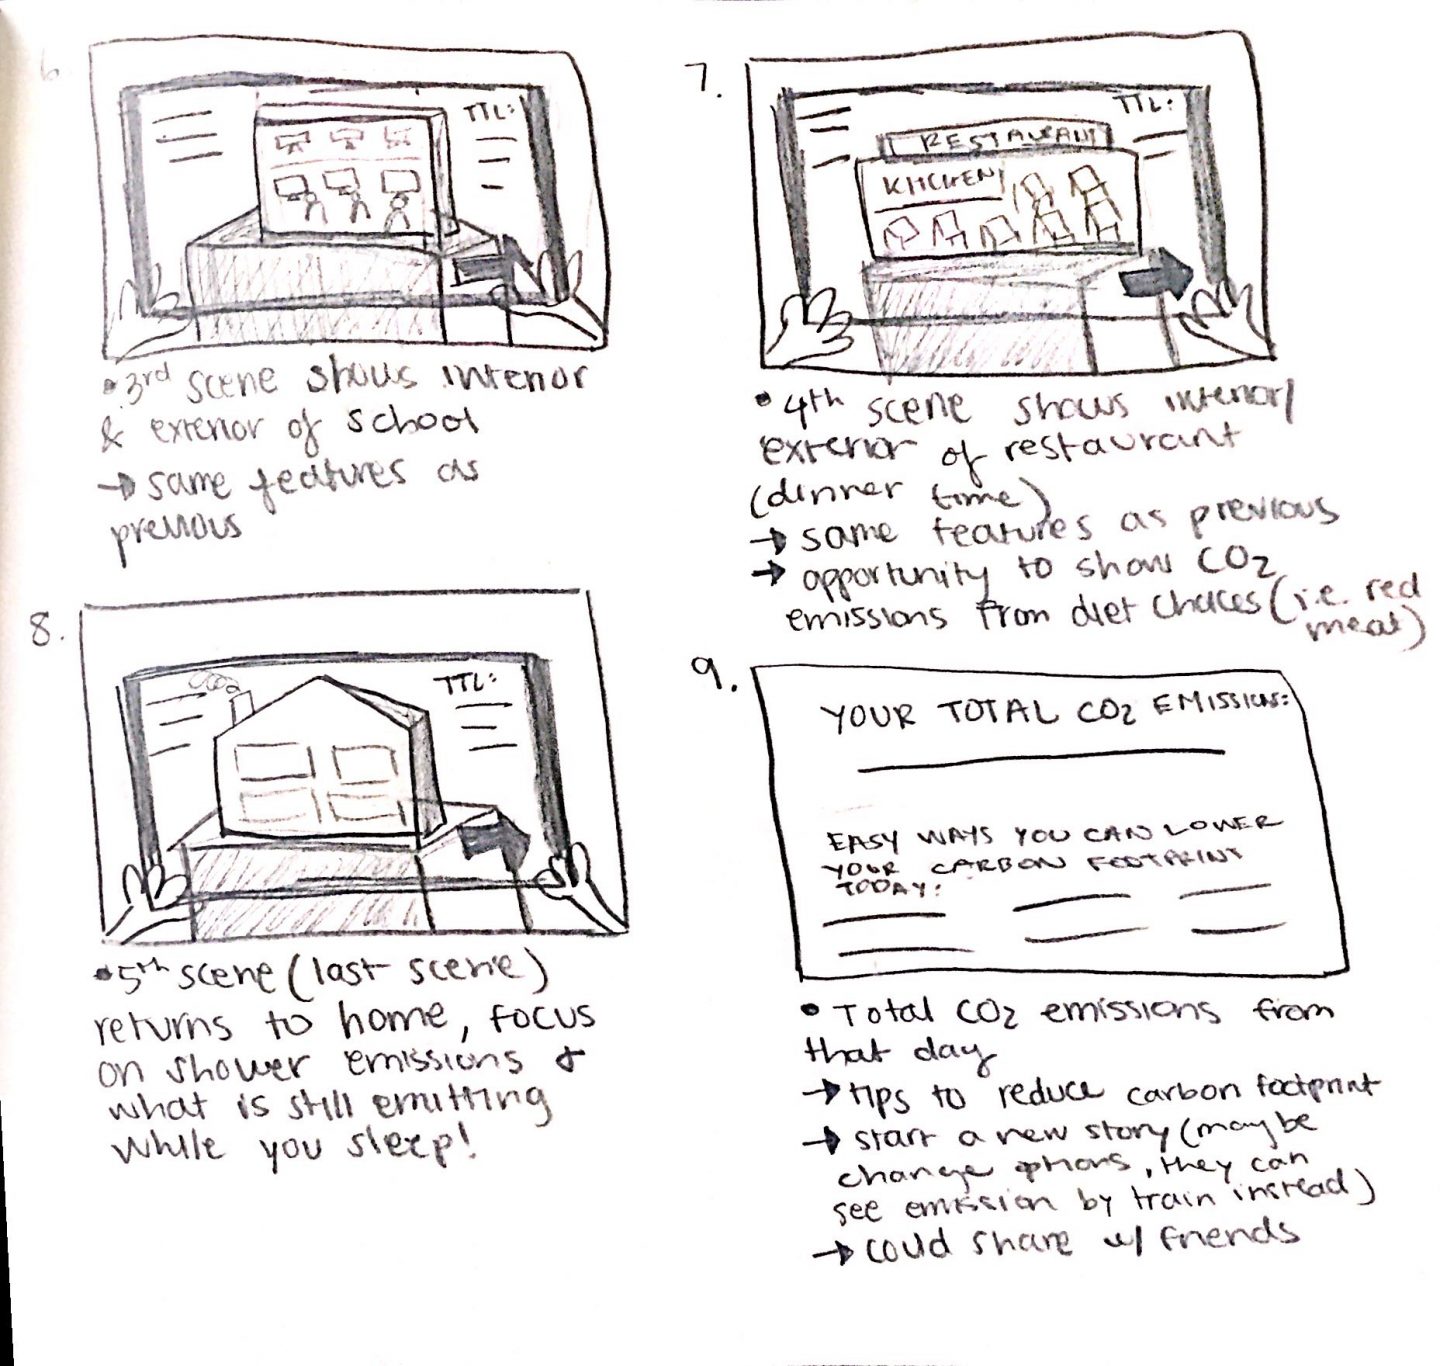 6.
TTL:
• 3rd scene shows interior
& exterior of school
→ same features as
previous
7.
TTL:
RESTAURANT
KITCHEN
• 4th scene shows interior/
exterior of restaurant
(dinner time)
→ same features as previous
→ opportunity to show CO2
emissions from diet choices (i.e. red
meat)
8.
TTL:
• 5th scene (last scene)
returns to home, focus
on shower emissions &
what is still emitting
while you sleep!
9.
YOUR TOTAL CO2 EMISSIONS:
EASY WAYS YOU CAN LOWER
YOUR CARBON FOOTPRINT
TODAY:
• Total CO2 emissions from
that day
→ tips to reduce carbon footprint
→ start a new story (maybe
change options, they can
see emission by train instead)
→ could share w/ friends